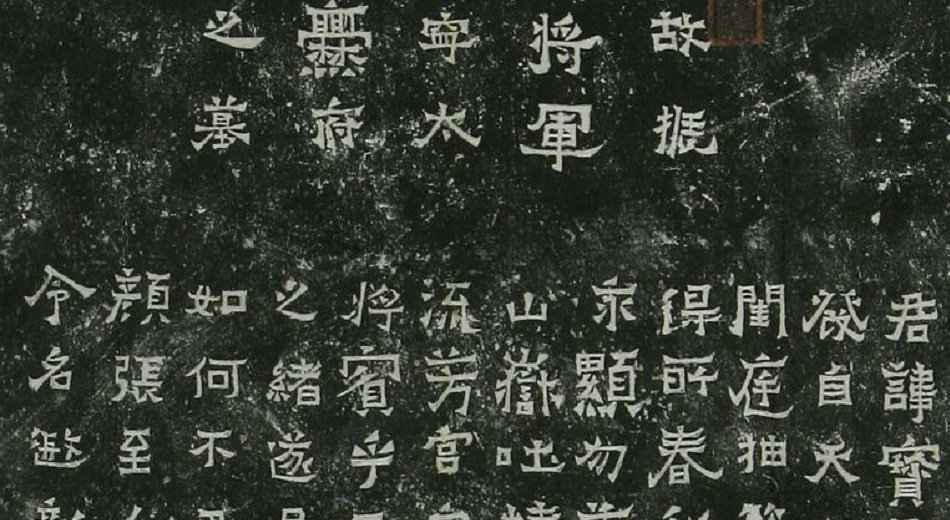 故振
將軍
寧太
爨府
之墓
君諱寶
發自天
閨庭抽
得所春
永顯勿
山嶽吐
流芳宮
將賓乎
之緒遂
如何不
顏張至
令名